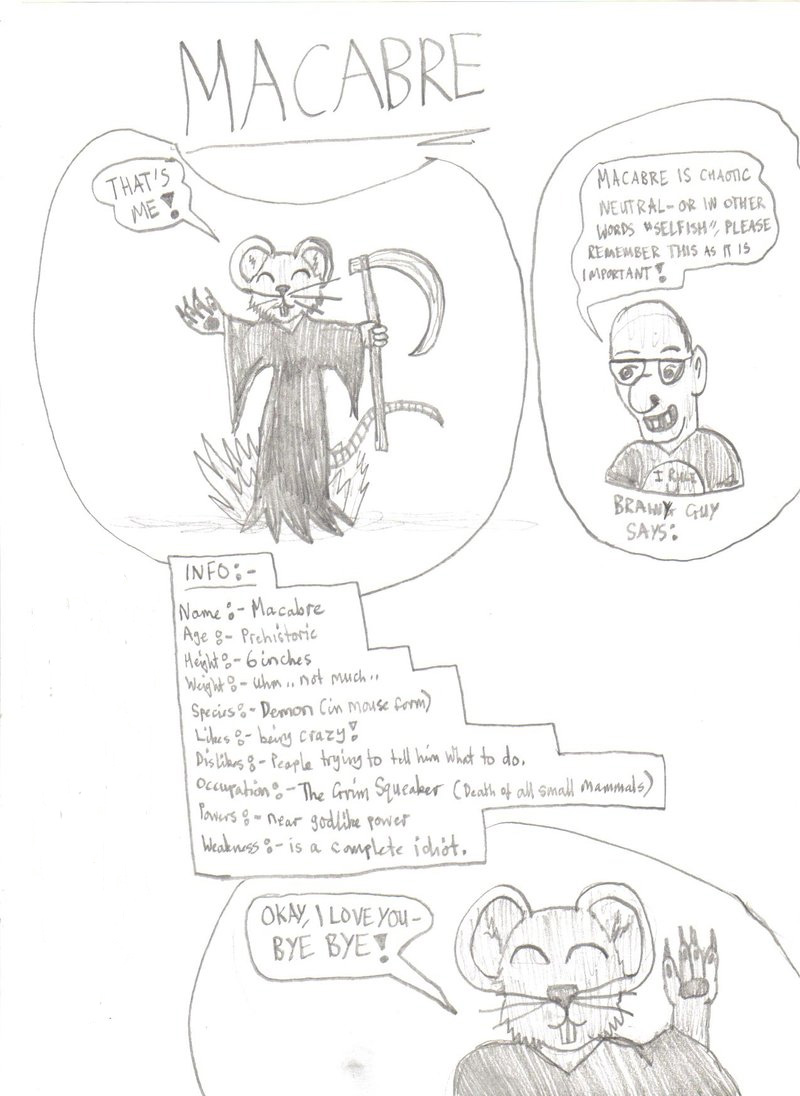 MACABRE
THAT'S
ME!
MACABRE IS CHAOTIC
NEUTRAL- OR IN OTHER
WORDS "SELFISH", PLEASE
REMEMBER THIS AS IT IS
IMPORTANT!
I RULE
BRAINY GUY
SAYS:
INFO:-
Name:- Macabre
Age:- Prehistoric
Height:- 6 inches
Weight:- uhm.. not much..
Species:- Demon (in mouse form)
Likes:- being crazy!
Dislikes:- People trying to tell him what to do.
Occupation:- The Grim Squeaker (Death of all small Mammals)
Powers:- near godlike power
Weakness:- is a complete idiot.
OKAY, I LOVE YOU-
BYE BYE!